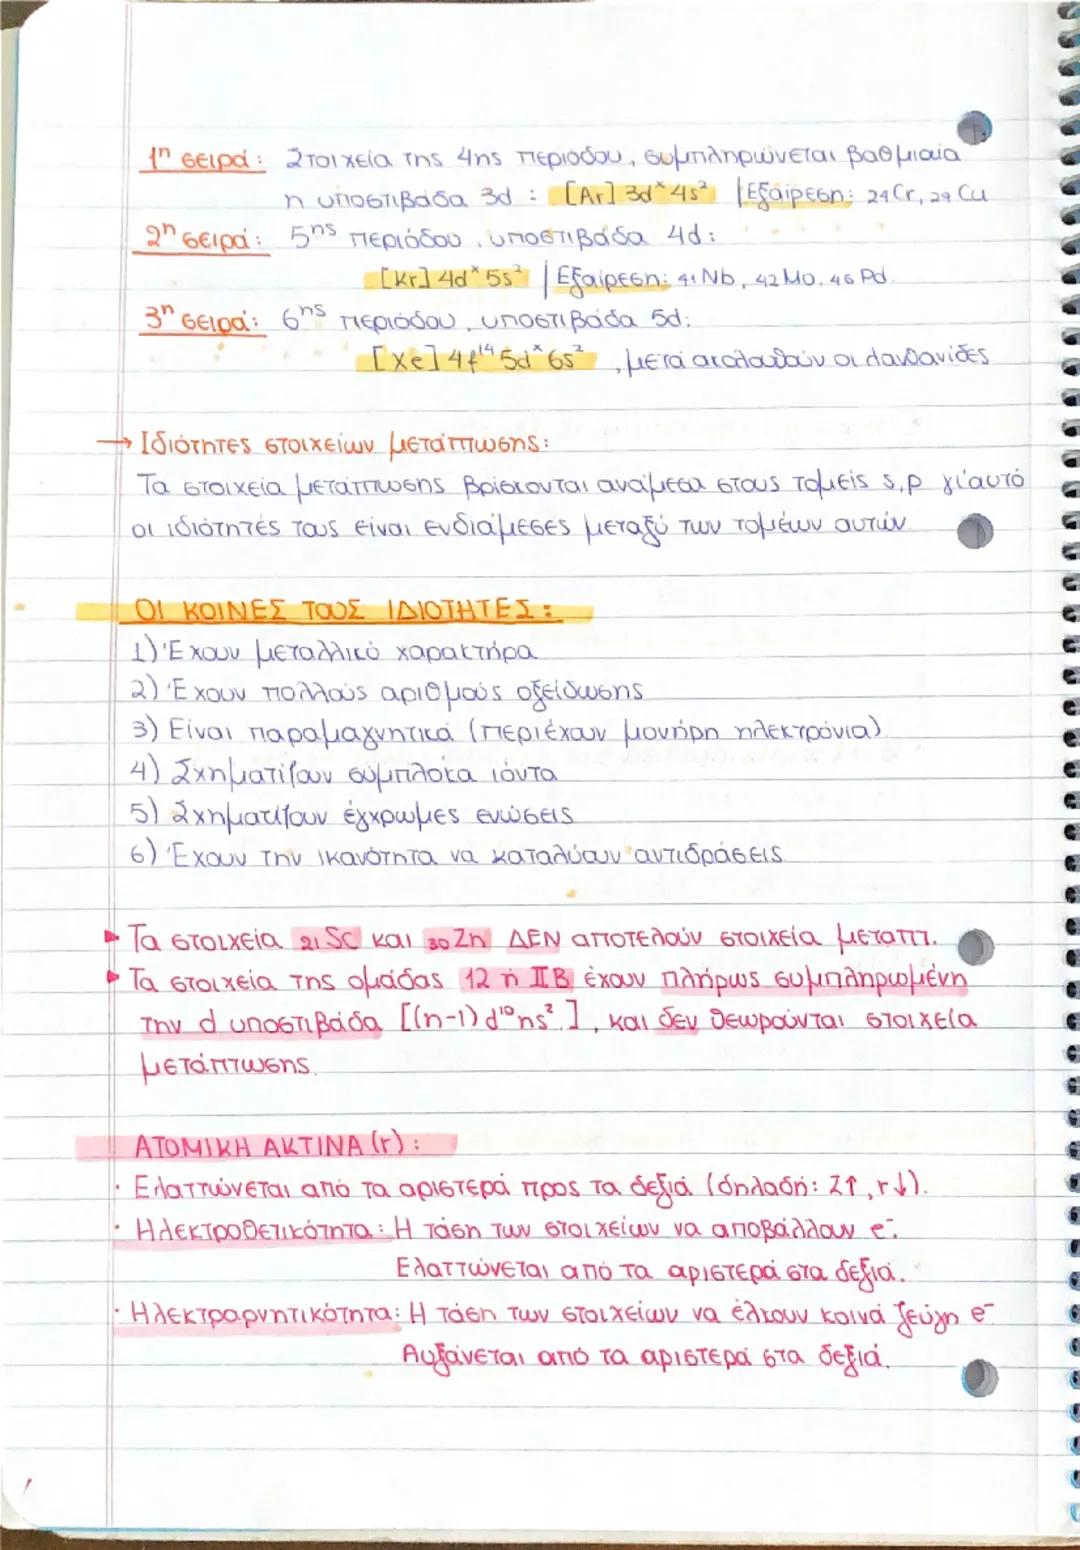 1η σειρά: Στοιχεία της 4ης περιόδου, συμπληρώνεται βαθμιαία
η υποστιβάδα 3d : [Ar] 3dˣ 4s² | Εξαίρεση: ₂₄Cr, ₂₉Cu
2η σειρά: 5ης περιόδου, υποστιβάδα 4d:
[Kr] 4dˣ 5s² | Εξαίρεση: ₄₁Nb, ₄₂Mo, ₄₆Pd.
3η σειρά: 6ης περιόδου, υποστιβάδα 5d:
[Xe] 4f¹⁴ 5dˣ 6s² , μετά ακολουθούν οι λανθανίδες
→ Ιδιότητες στοιχείων μετάπτωσης:
Τα στοιχεία μετάπτωσης βρίσκονται ανάμεσα στους τομείς s,p γι'αυτό
οι ιδιότητές τους είναι ενδιάμεσες μεταξύ των τομέων αυτών
ΟΙ ΚΟΙΝΕΣ ΤΟΥΣ ΙΔΙΟΤΗΤΕΣ:
1) Έχουν μεταλλικό χαρακτήρα
2) Έχουν πολλούς αριθμούς οξείδωσης
3) Είναι παραμαγνητικά (περιέχουν μονήρη ηλεκτρόνια)
4) Σχηματίζουν σύμπλοκα ιόντα
5) Σχηματίζουν έγχρωμες ενώσεις
6) Έχουν την ικανότητα να καταλύουν αντιδράσεις
▸ Τα στοιχεία ₂₁Sc και ₃₀Zn ΔΕΝ αποτελούν στοιχεία μεταπτ.
▸ Τα στοιχεία της ομάδας 12 ή IIB έχουν πλήρως συμπληρωμένη
την d υποστιβάδα [(n-1)d¹⁰ns²], και δεν θεωρούνται στοιχεία
μετάπτωσης.
ΑΤΟΜΙΚΗ ΑΚΤΙΝΑ (r):
· Ελαττώνεται από τα αριστερά προς τα δεξιά (δηλαδή: Z↑, r↓).
· Ηλεκτροθετικότητα: Η τάση των στοιχείων να αποβάλλουν e⁻.
Ελαττώνεται από τα αριστερά στα δεξιά.
· Ηλεκτραρνητικότητα: Η τάση των στοιχείων να έλκουν κοινά ζεύγη e⁻
Αυξάνεται από τα αριστερά στα δεξιά.